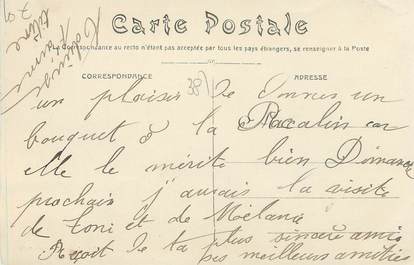 Carte Postale
La Correspondance au recto n'étant pas acceptée par tous les pays étrangers, se renseigner à la Poste
CORRESPONDANCE
ADRESSE
38
un plaisir de donner un
bouquet à la car
elle le mérite bien Dimanche
prochain j'aurais la visite
de toni et de Mélanie
Reçoit de ta plus sincère amie
ses meilleurs amitiés